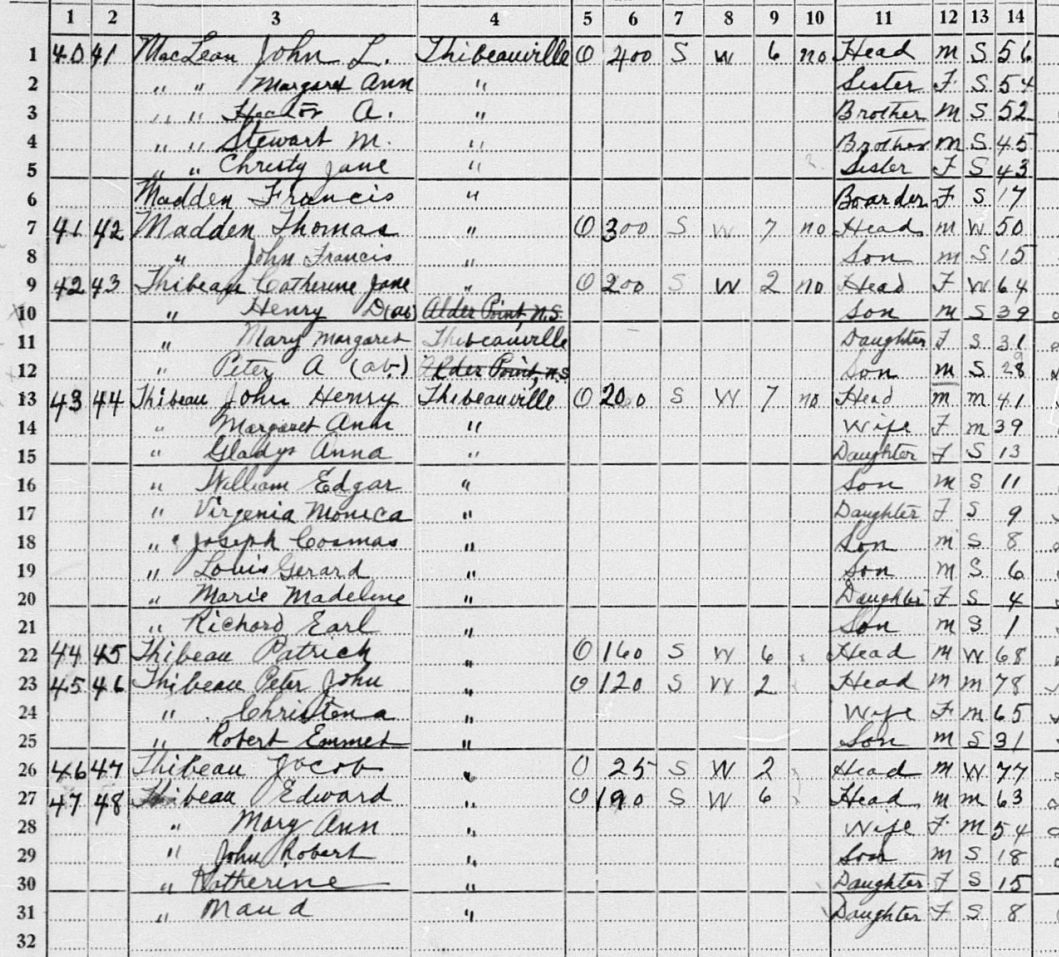 1 2 3 4 5 6 7 8 9 10 11 12 13 14
1 40 41 MacLean John L. Thibeauville O 400 S W 6 no Head m S 56
2 " " Margaret Ann " Sister F S 54
3 " " Hector A. " Brother M S 52
4 " " Stewart M. " Brother m S 45
5 " " Christy Jane " Sister F S 43
6 Madden Francis " Boarder F S 17
7 41 42 Madden Thomas " O 300 S W 7 no Head m W 50
8 " John Francis " Son m S 15
9 42 43 Thibeau Catherine Jane " O 200 S W 2 no Head F W 64
10 " Henry D (ab) Alder Point, N.S. Son m S 39
11 " Mary Margaret Thibeauville Daughter F S 31
12 " Peter A (ab.) Alder Point, N.S Son m S 28
13 43 44 Thibeau John Henry Thibeauville O 200 S W 7 no Head m m 41
14 " Margaret Ann " Wife F m 39
15 " Gladys Anna " Daughter F S 13
16 " William Edgar " Son m S 11
17 " Virginia Monica " Daughter F S 9
18 " Joseph Cosmas " Son m S 8
19 " Louis Gerard " Son m S 6
20 " Marie Madeline " Daughter F S 4
21 " Richard Earl " Son m S 1
22 44 45 Thibeau Patrick " O 160 S W 6 Head m W 68
23 45 46 Thibeau Peter John " O 120 S W 2 Head m m 78
24 " Christena " Wife F m 65
25 " Robert Emmet " Son m S 31
26 46 47 Thibeau Jacob " O 25 S W 2 Head m W 77
27 47 48 Thibeau Edward " O 190 S W 6 Head m m 63
28 " Mary Ann " Wife F m 54
29 " John Robert " Son m S 18
30 " Katherine " Daughter F S 15
31 " Maud " Daughter F S 8
32